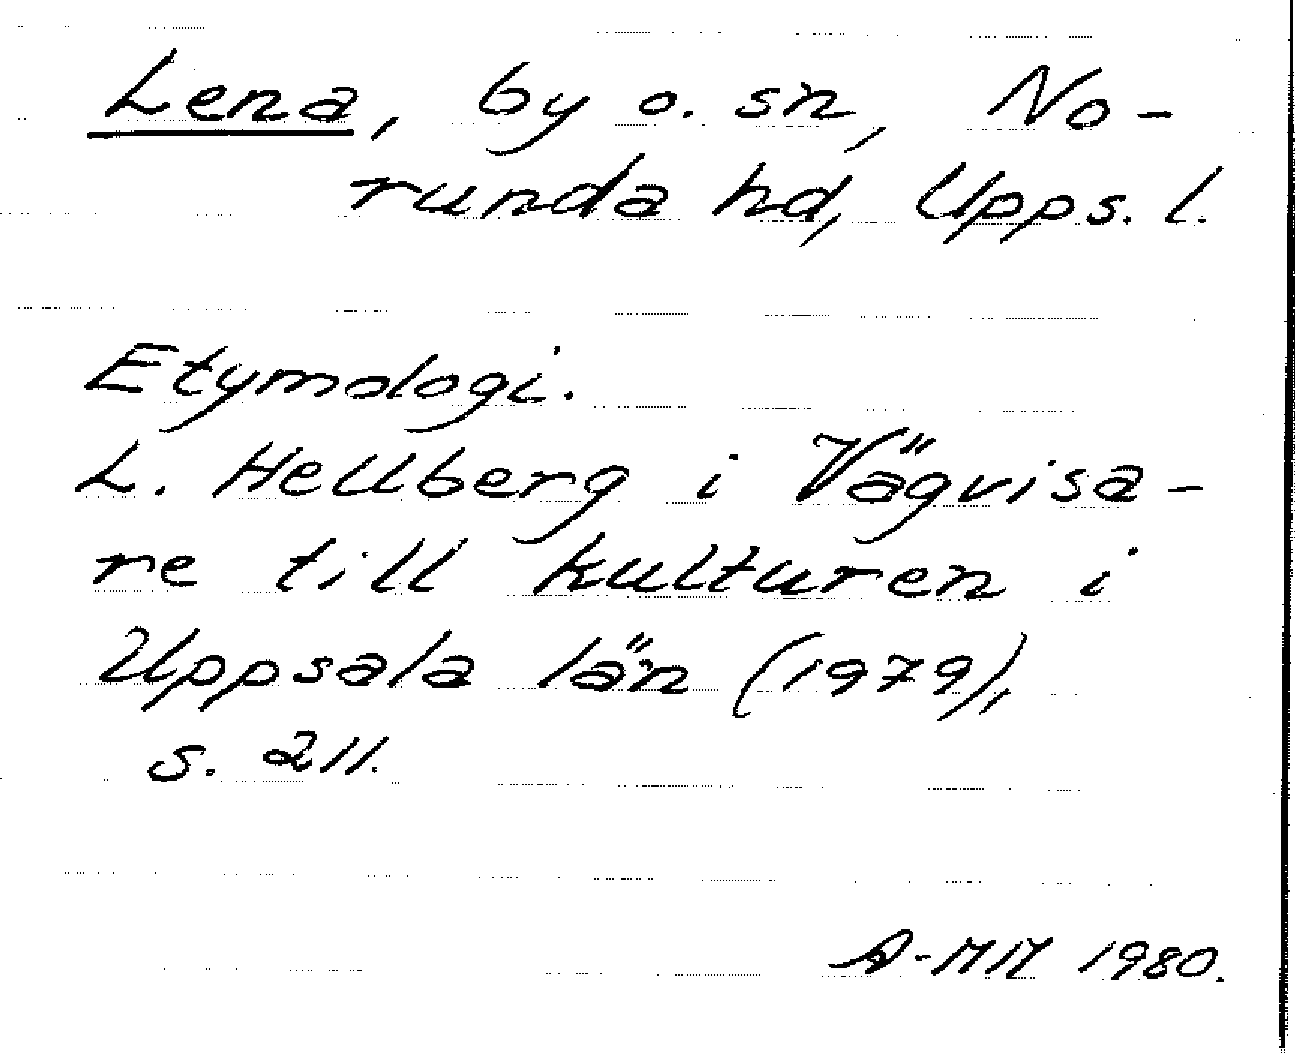 Lena, by o. sn, No-
runda hd, Upps. l.
Etymologi.
L. Hellberg i Vägvisa-
re till kulturen i
Uppsala län (1979),
s. 211.
A-MM 1980.